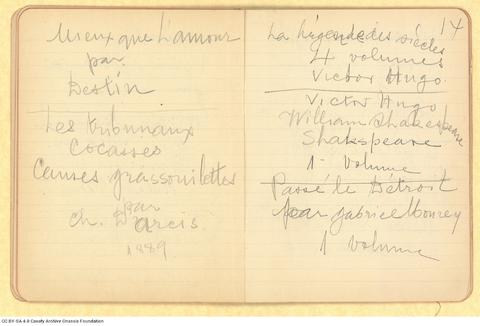 Mieux que L'amour
par
Destin
Les tribunaux
Cocasses
Causes grassouilettes
par
Ch. Darcis.
1889
14
La Légende des siècles
4 volumes
Victor Hugo
Victor Hugo
William Shakespeare
Shakspeare
1 volume
Passé le Détroit
par gabriel Mourey
1 volume
CC BY-SA-4.0 Cavafy Archive Onassis Foundation